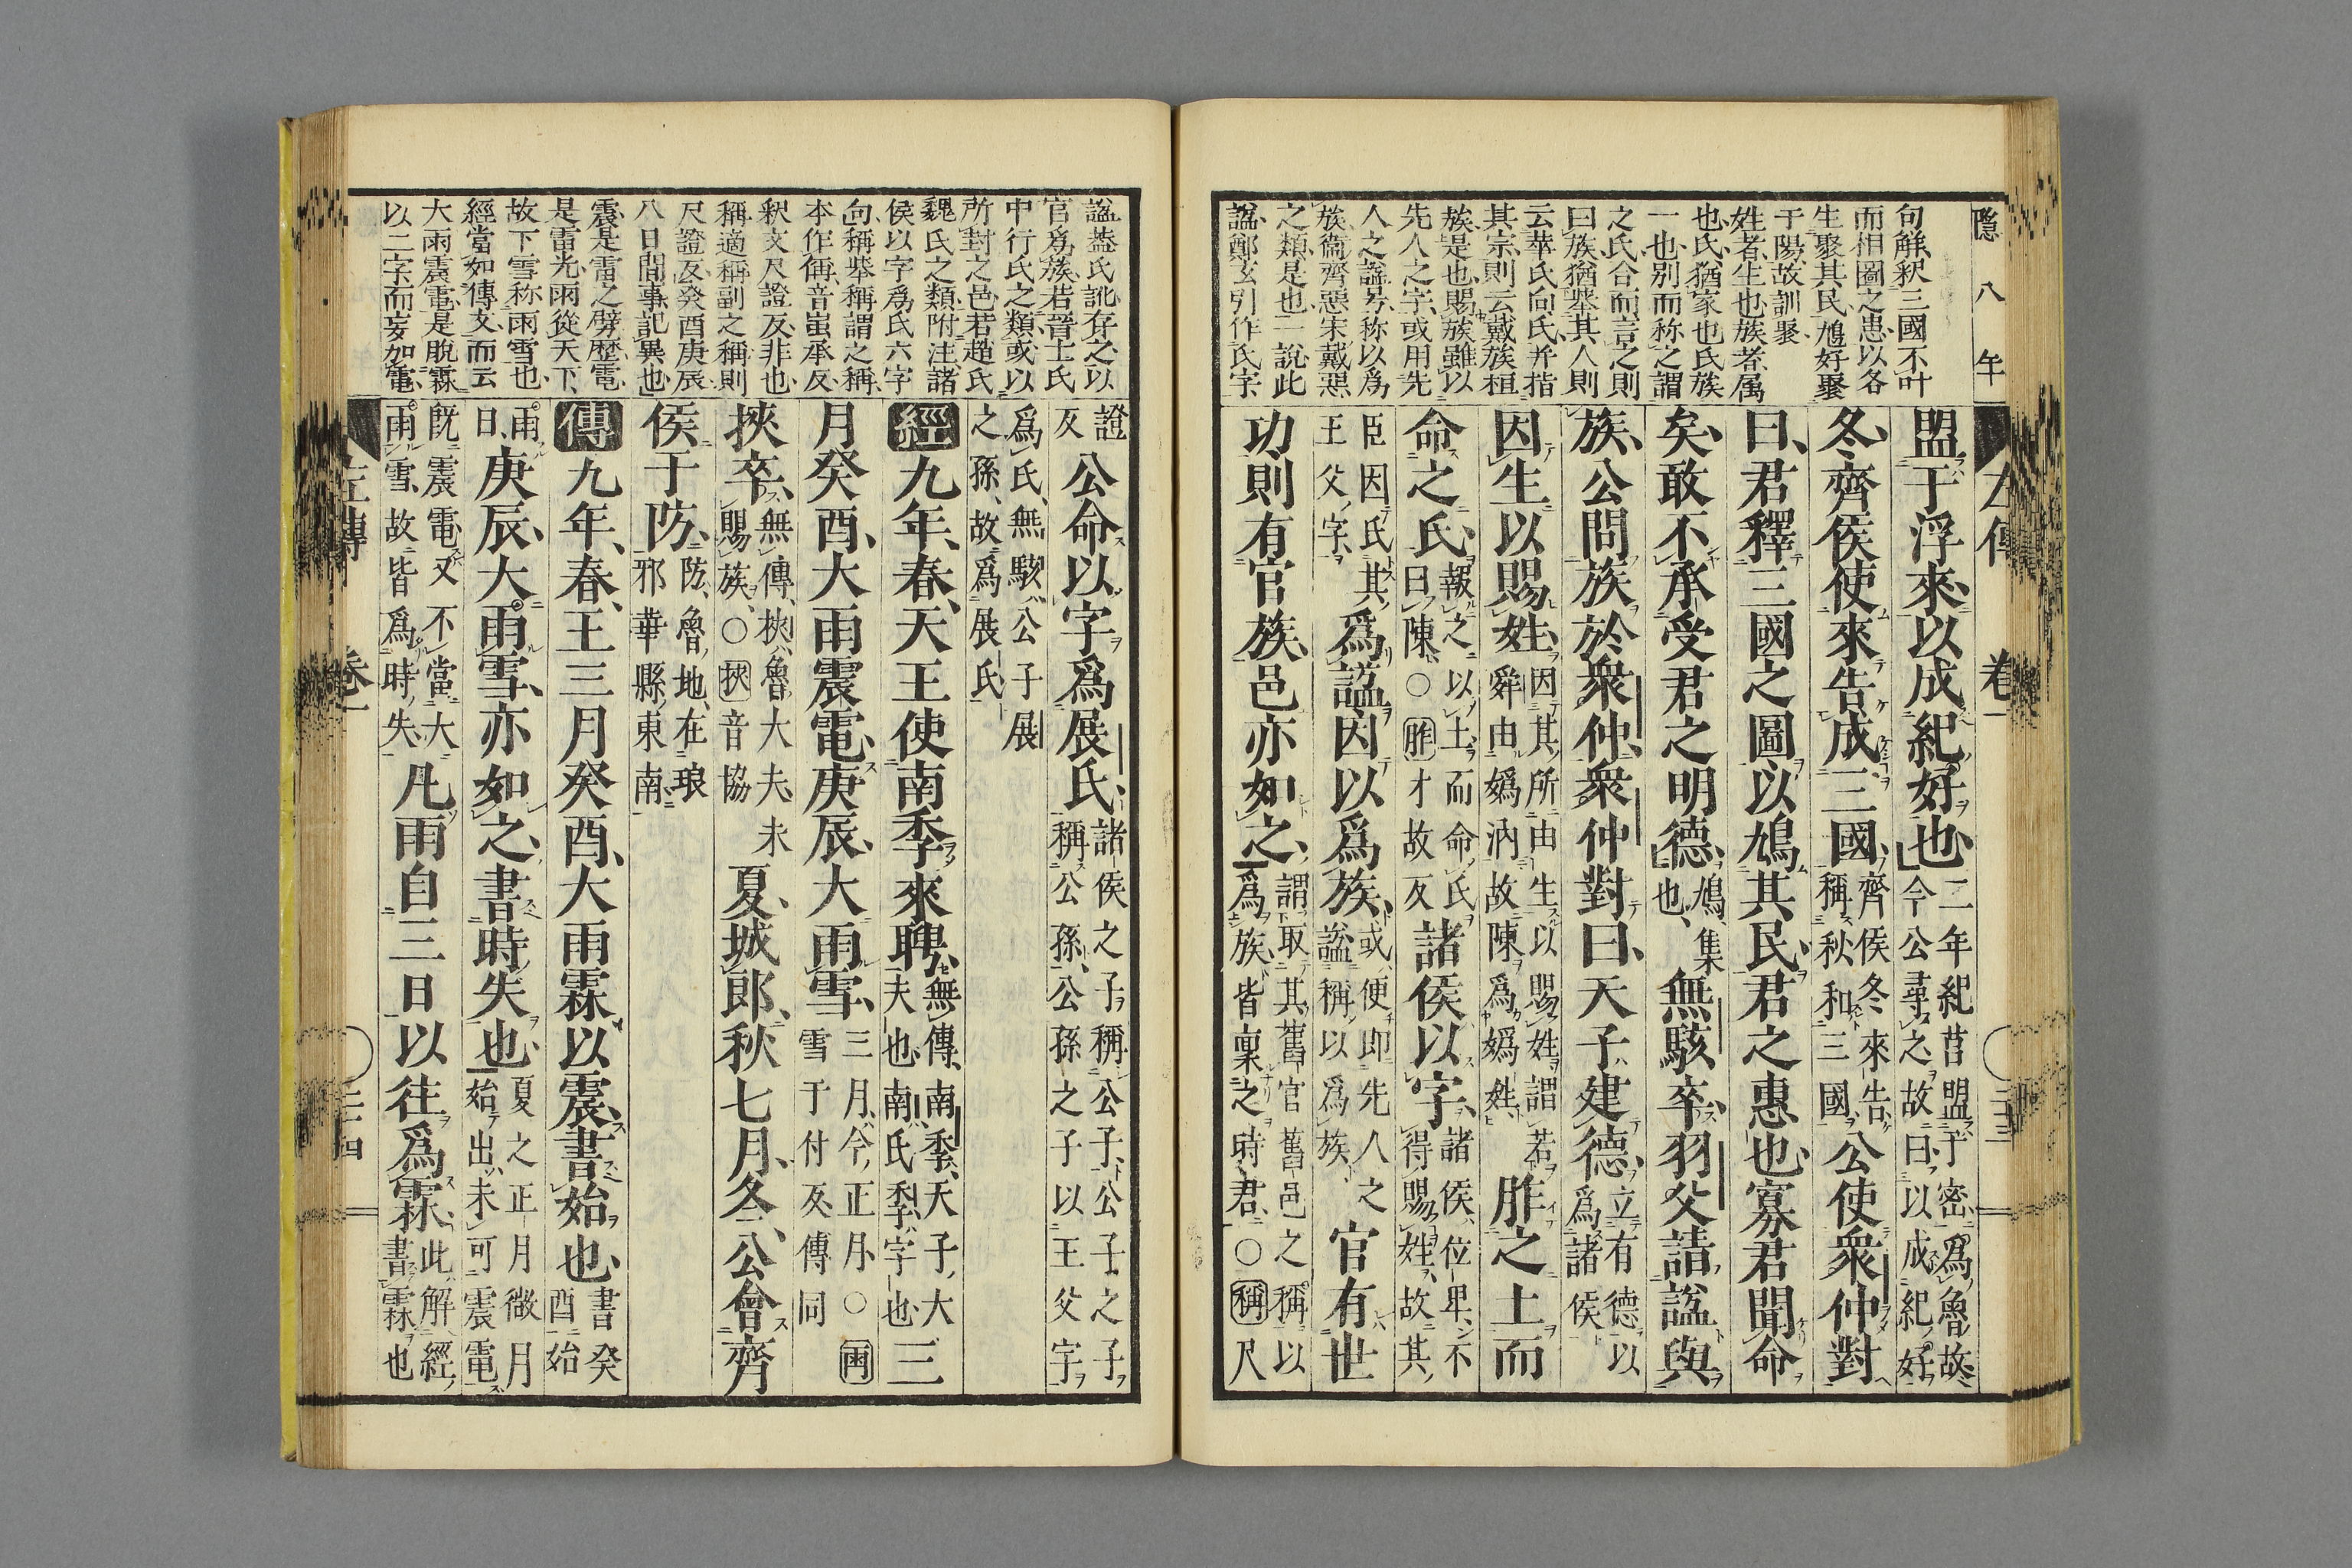 隱八年
句解釈三國不叶
而相圖之患以各
生聚其民鳩好聚
于陽故訓聚
姓者生也族者属
也氏猶家也氏族
一也別而称之謂
之氏合而言之則
曰族猶挙其人則
云華氏向氏并指
其宗則云戴族桓
族是也賜族雖以
先人之字或用先
人之諡号称以爲
族衞齊惡宋戴惡
之類是也一説此
諡鄭玄引作氏字
左傳 卷一 二十三
盟于浮來以成紀好也二年紀莒盟于密爲魯故今公尋之故曰以成紀好
冬齊侯使來告成三國齊侯冬來告稱秋和三國公使衆仲對
曰君釋三國之圖以鳩其民君之惠也寡君聞命
矣敢不承受君之明德鳩集也無駭卒羽父請諡與
族公問族於衆仲衆仲對曰天子建德立有德以爲諸侯
因生以賜姓因其所由生以賜姓謂若舜由嬀汭故陳爲嬀姓胙之土而
命之氏報之以土而命氏曰陳○胙才故反諸侯以字諸侯位卑不得賜姓故其
臣因氏其王父字爲諡因以爲族或便即先人之諡稱以爲族官有世
功則有官族邑亦如之謂取其舊官舊邑之稱以爲族皆稟之時君○稱尺
諡葢氏訛存之以
官爲族若晉士氏
中行氏之類或以
所封之邑若趙氏
魏氏之類附注諸
侯以字爲氏六字
句稱挙稱謂之稱
本作偁音虽承反
釈文尺證反非也
稱適稱副之稱則
尺證反癸酉庚辰
八日間事記異也
震是雷之劈歴電
是雷光雨從天下
故下雪称雨雪也
經當如傳文而云
大雨震電是脱霖
以二字而妄加電
證反公命以字爲展氏諸侯之子稱公子公子之子稱公孫公孫之子以王父字
爲氏無駭公子展之孫故爲展氏
經九年春天王使南季來聘無傳南季天子大夫也南氏季字也三
月癸酉大雨震電庚辰大雨雪三月今正月○雨雪于付反傳同
挾卒無傳挾魯大夫未賜族○挾音協夏城郎秋七月冬公會齊
侯于防防魯地在琅邪華縣東南
傳九年春王三月癸酉大雨霖以震書始也書癸酉始
雨日庚辰大雨雪亦如之書時失也夏之正月微月始出未可震電
既震電又不當大雨雪故皆爲時失凡雨自三日以往爲霖此解經書霖也
左傳 卷一 二十四